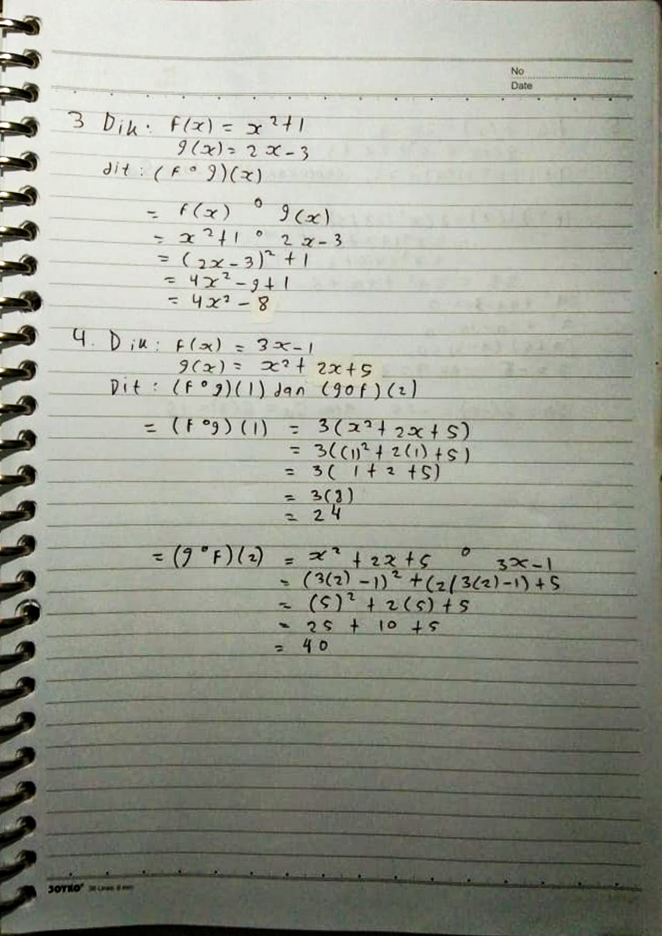 No
Date
3 Dik : f(x) = x²+1
g(x) = 2x-3
dit : (f°g)(x)
= f(x) ° g(x)
= x²+1 ° 2x-3
= (2x-3)² + 1
= 4x² - 9+1
= 4x² - 8
4. Dik : f(x) = 3x-1
g(x) = x² + 2x+5
Dit : (f°g)(1) dan (g0f)(2)
= (f°g)(1) = 3(x²+2x+5)
= 3((1)²+2(1)+5)
= 3( 1+2 +5)
= 3(8)
= 24
= (g°f)(2) = x² + 2x+5 ° 3x-1
= (3(2)-1)² + (2(3(2)-1)+5
= (5)² + 2(5)+5
= 25 + 10 +5
= 40
JOYKO 36 Lines, 8 mm